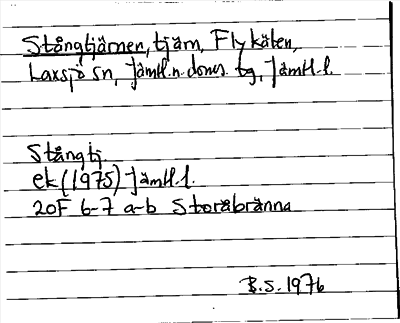 Stångtjärnen, tjärn, Flykälen,
Laxsjö sn, Jämtl.n. doms. tg, Jämtl.l.
Stångtj.
ek (1975) Jämtl.l.
20F 6-7 a-b Storåbränna
B.S. 1976